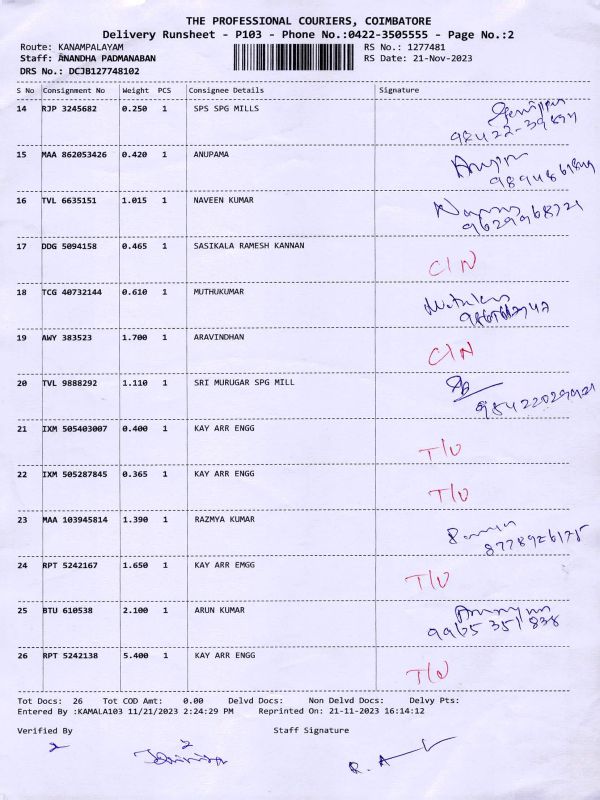 THE PROFESSIONAL COURIERS, COIMBATORE
Delivery Runsheet - P103 - Phone No.:0422-3505555 - Page No.:2
Route: KANAMPALAYAM RS No.: 1277481
Staff: ANANDHA PADMANABAN RS Date: 21-Nov-2023
DRS No.: DCJB127748102
S No Consignment No Weight PCS Consignee Details Signature
14 RJP 3245682 0.250 1 SPS SPG MILLS
15 MAA 862053426 0.420 1 ANUPAMA
16 TVL 6635151 1.015 1 NAVEEN KUMAR
9629968721
17 DDG 5094158 0.465 1 SASIKALA RAMESH KANNAN
C/N
18 TCG 40732144 0.610 1 MUTHUKUMAR
19 AWY 383523 1.700 1 ARAVINDHAN
C/N
20 TVL 9888292 1.110 1 SRI MURUGAR SPG MILL
21 IXM 505403007 0.400 1 KAY ARR ENGG
T/U
22 IXM 505287845 0.365 1 KAY ARR ENGG
T/U
23 MAA 103945814 1.390 1 RAZMYA KUMAR
8778926175
24 RPT 5242167 1.650 1 KAY ARR EMGG
T/U
25 BTU 610538 2.100 1 ARUN KUMAR
9965 351 838
26 RPT 5242138 5.400 1 KAY ARR ENGG
T/U
Tot Docs: 26 Tot COD Amt: 0.00 Delvd Docs: Non Delvd Docs: Delvy Pts:
Entered By :KAMALA103 11/21/2023 2:24:29 PM Reprinted On: 21-11-2023 16:14:12
Verified By Staff Signature